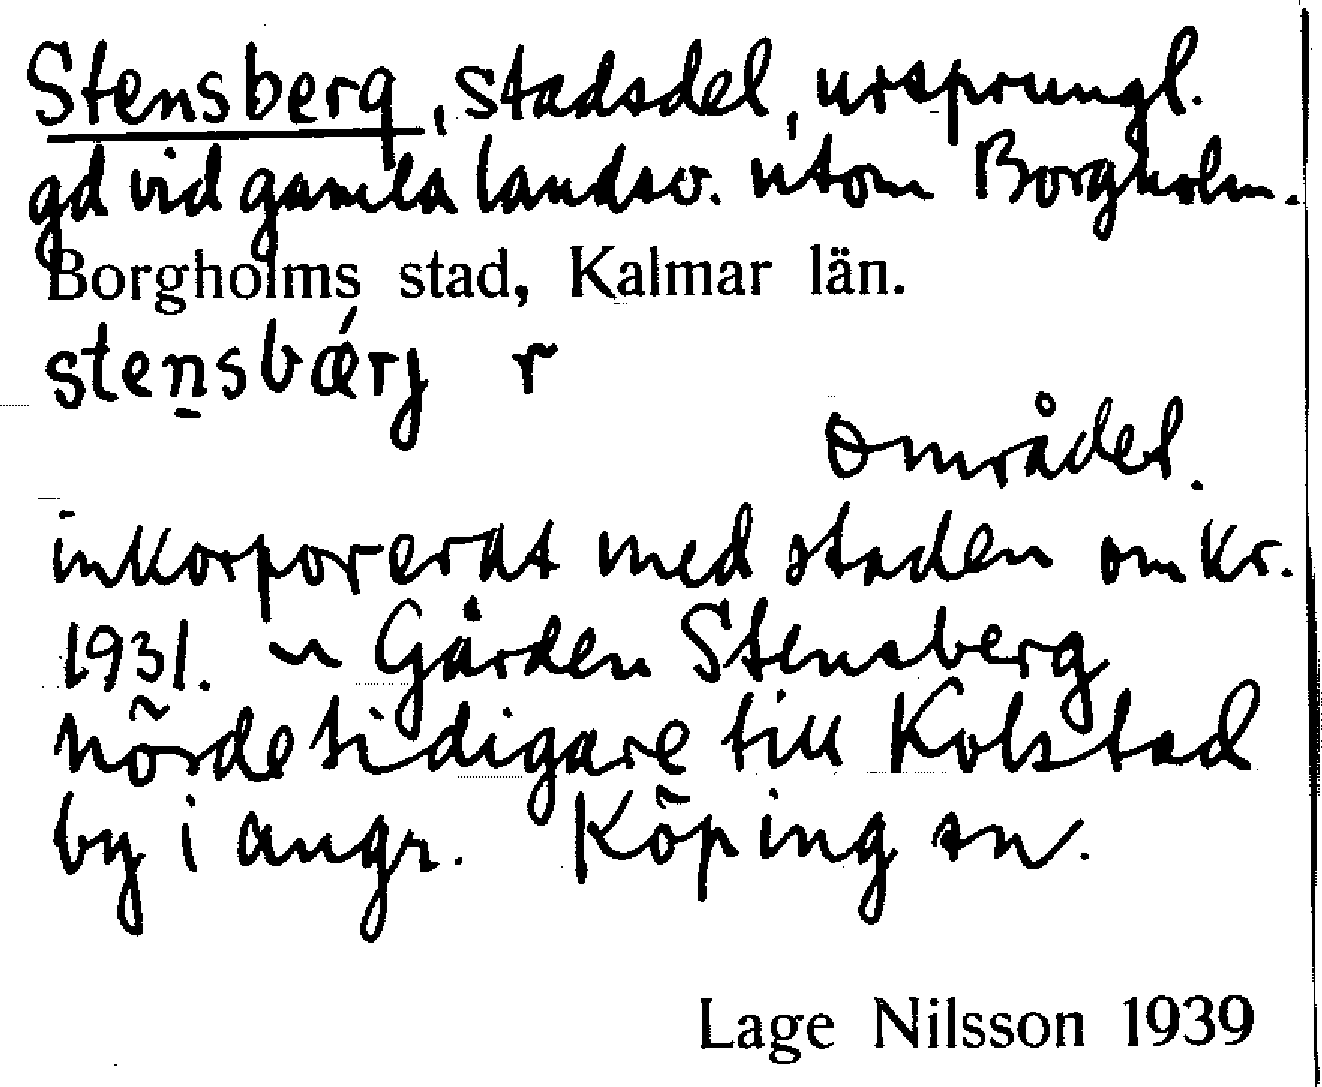 Stensberg, stadsdel, ursprungl.
gd vid gamla landsv. utom Borgholm.
Borgholms stad, Kalmar län.
stensbǽrj r
Området
inkorporerat med staden omkr.
1931. ~ Gården Stensberg
hörde tidigare till Kolstad
by i angr. Köping sn.
Lage Nilsson 1939